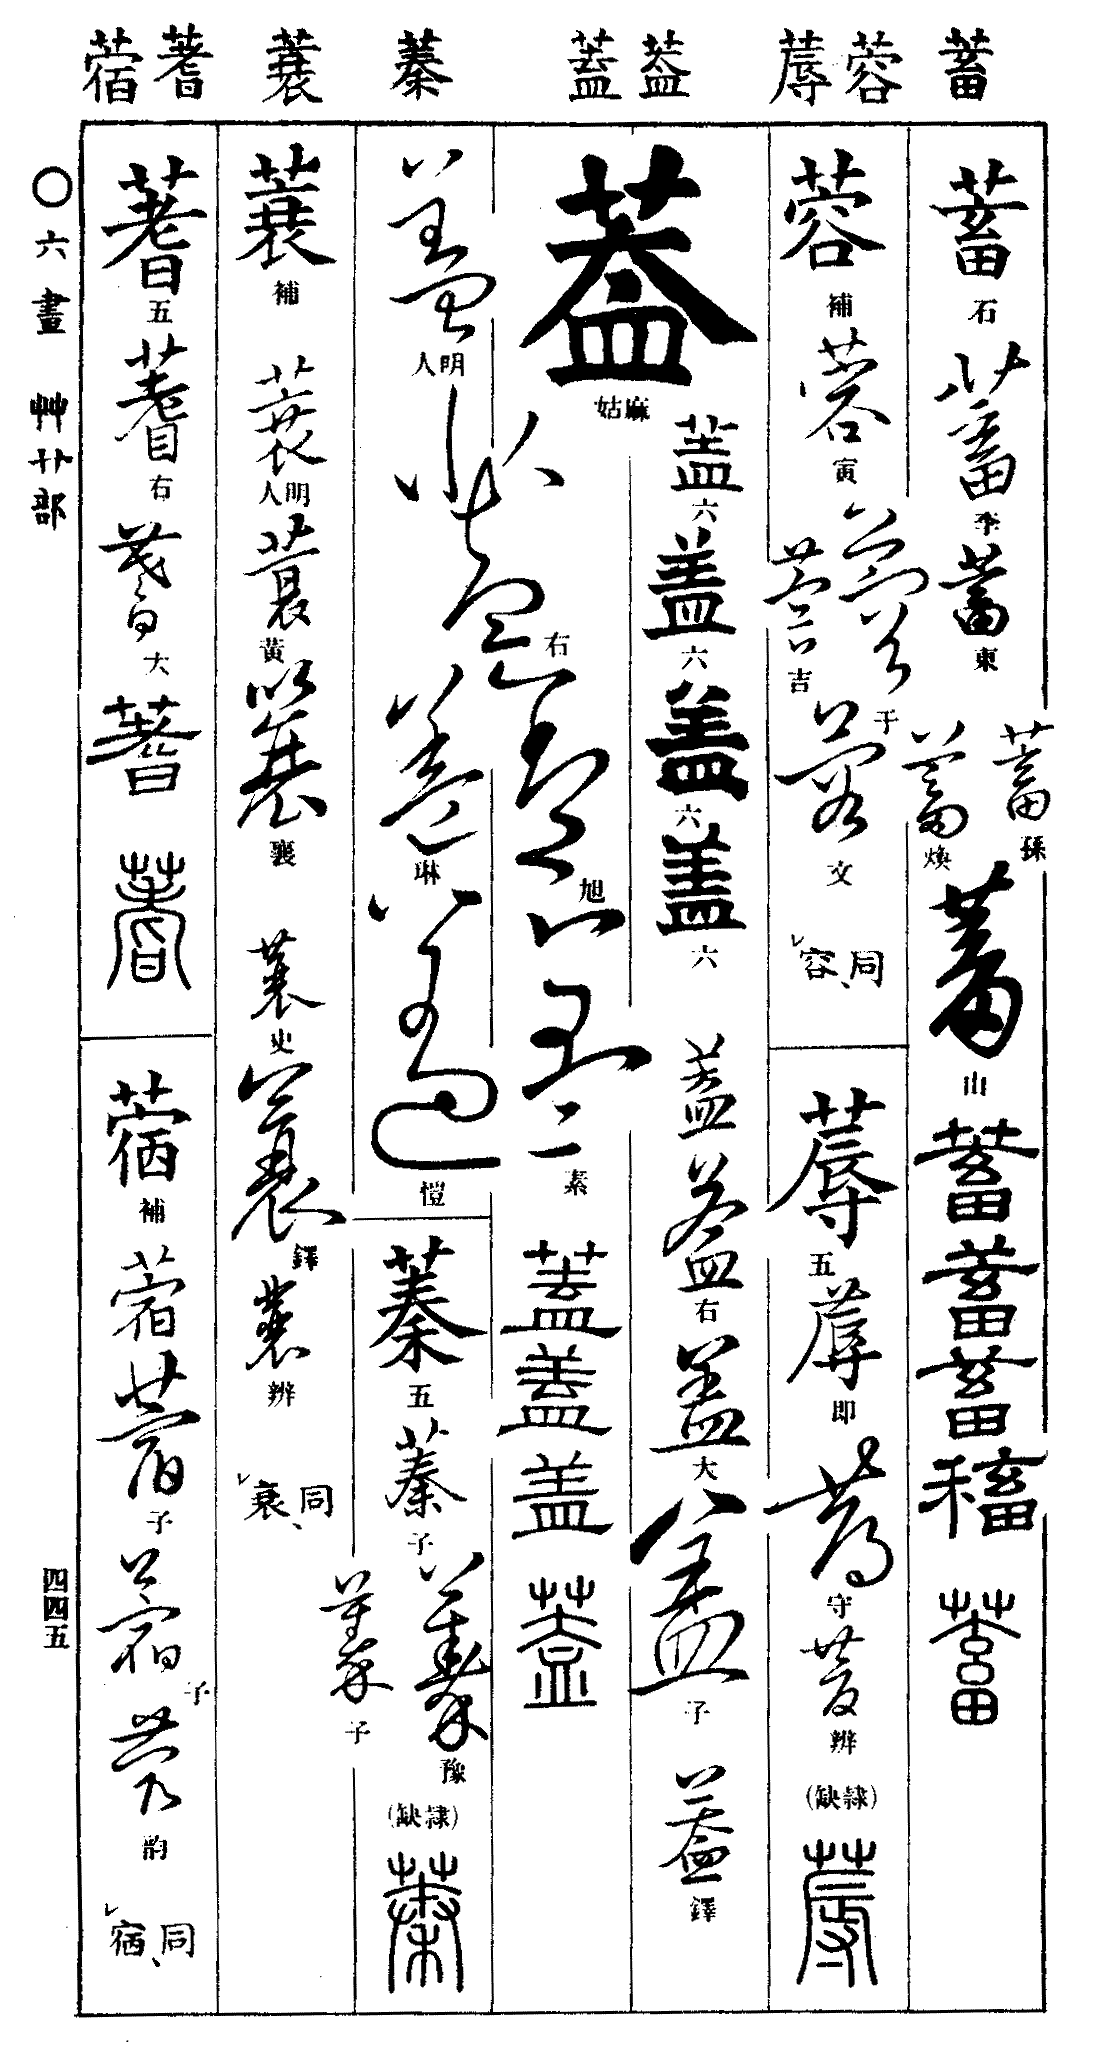 蓄
蓉 蓐
葢 蓋
蓁
蓑
蓍 蓿
蓄
石
蓄
季
蓄
東
蓄
孫
蓄
煥
蓄
山
蓄
蓄
蓄
稸
蓄
蓉
補
蓉
寅
蓉
于
蓉
吉
蓉
文
同容
蓐
五
蓐
即
蓐
守
蓐
辨
(隷缺)
蓐
葢
麻姑
蓋
六
蓋
六
蓋
六
蓋
六
葢
葢
右
蓋
大
蓋
子
蓋
鐸
蓋
右
蓋
旭
蓋
素
蓋
蓋
蓋
蓋
蓋
明人
蓋
琳
蓋
愷
蓁
五
蓁
子
蓁
豫
蓁
子
(隷缺)
蓁
蓑
補
蓑
明人
蓑
黄
蓑
襄
蓑
史
蓑
鐸
蓑
辨
同衰
蓍
五
蓍
右
蓍
大
蓍
蓍
蓿
補
蓿
蓿
子
蓿
子
蓿
韵
同宿
〇六畫 艸艹部
四四五